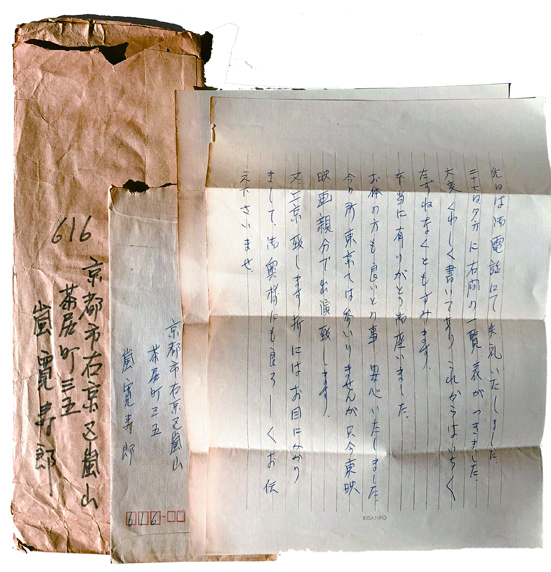 616
京都市右京区嵐山
茶屋町三五
嵐寛寿郎
京都市右京区嵐山
茶屋町三五
嵐寛寿郎
616
先日は御電話にて失礼いたしました
二十七日夕方に右開の一覧表がつきました
大変くわしく書いてありこれからはいちいち
たずねなくともすみます
本当に有りがとう御座いました
お体の方も良いとの事 安心いたしました
今の所東京へは参いりませんが只今東映
映画親分で出演致します
又上京致します折にはお目にかかり
まして、御奥様にも良ろしくお伝
え下さいませ